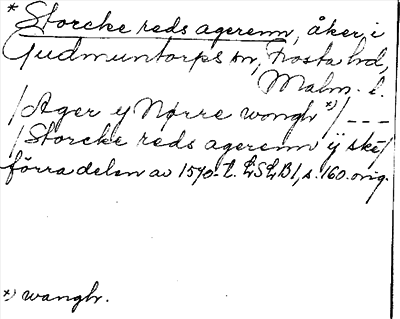 * Storcke reds agerenn, åker, i
Gudmuntorps sn, Frosta hd,
Malm. l.
/Ager y Nørre wongh *)/ ---
/Storcke reds agerenn ÿ ske/
förra delen av 1570-t. LSLB1, s. 160. orig.
*) wangh.